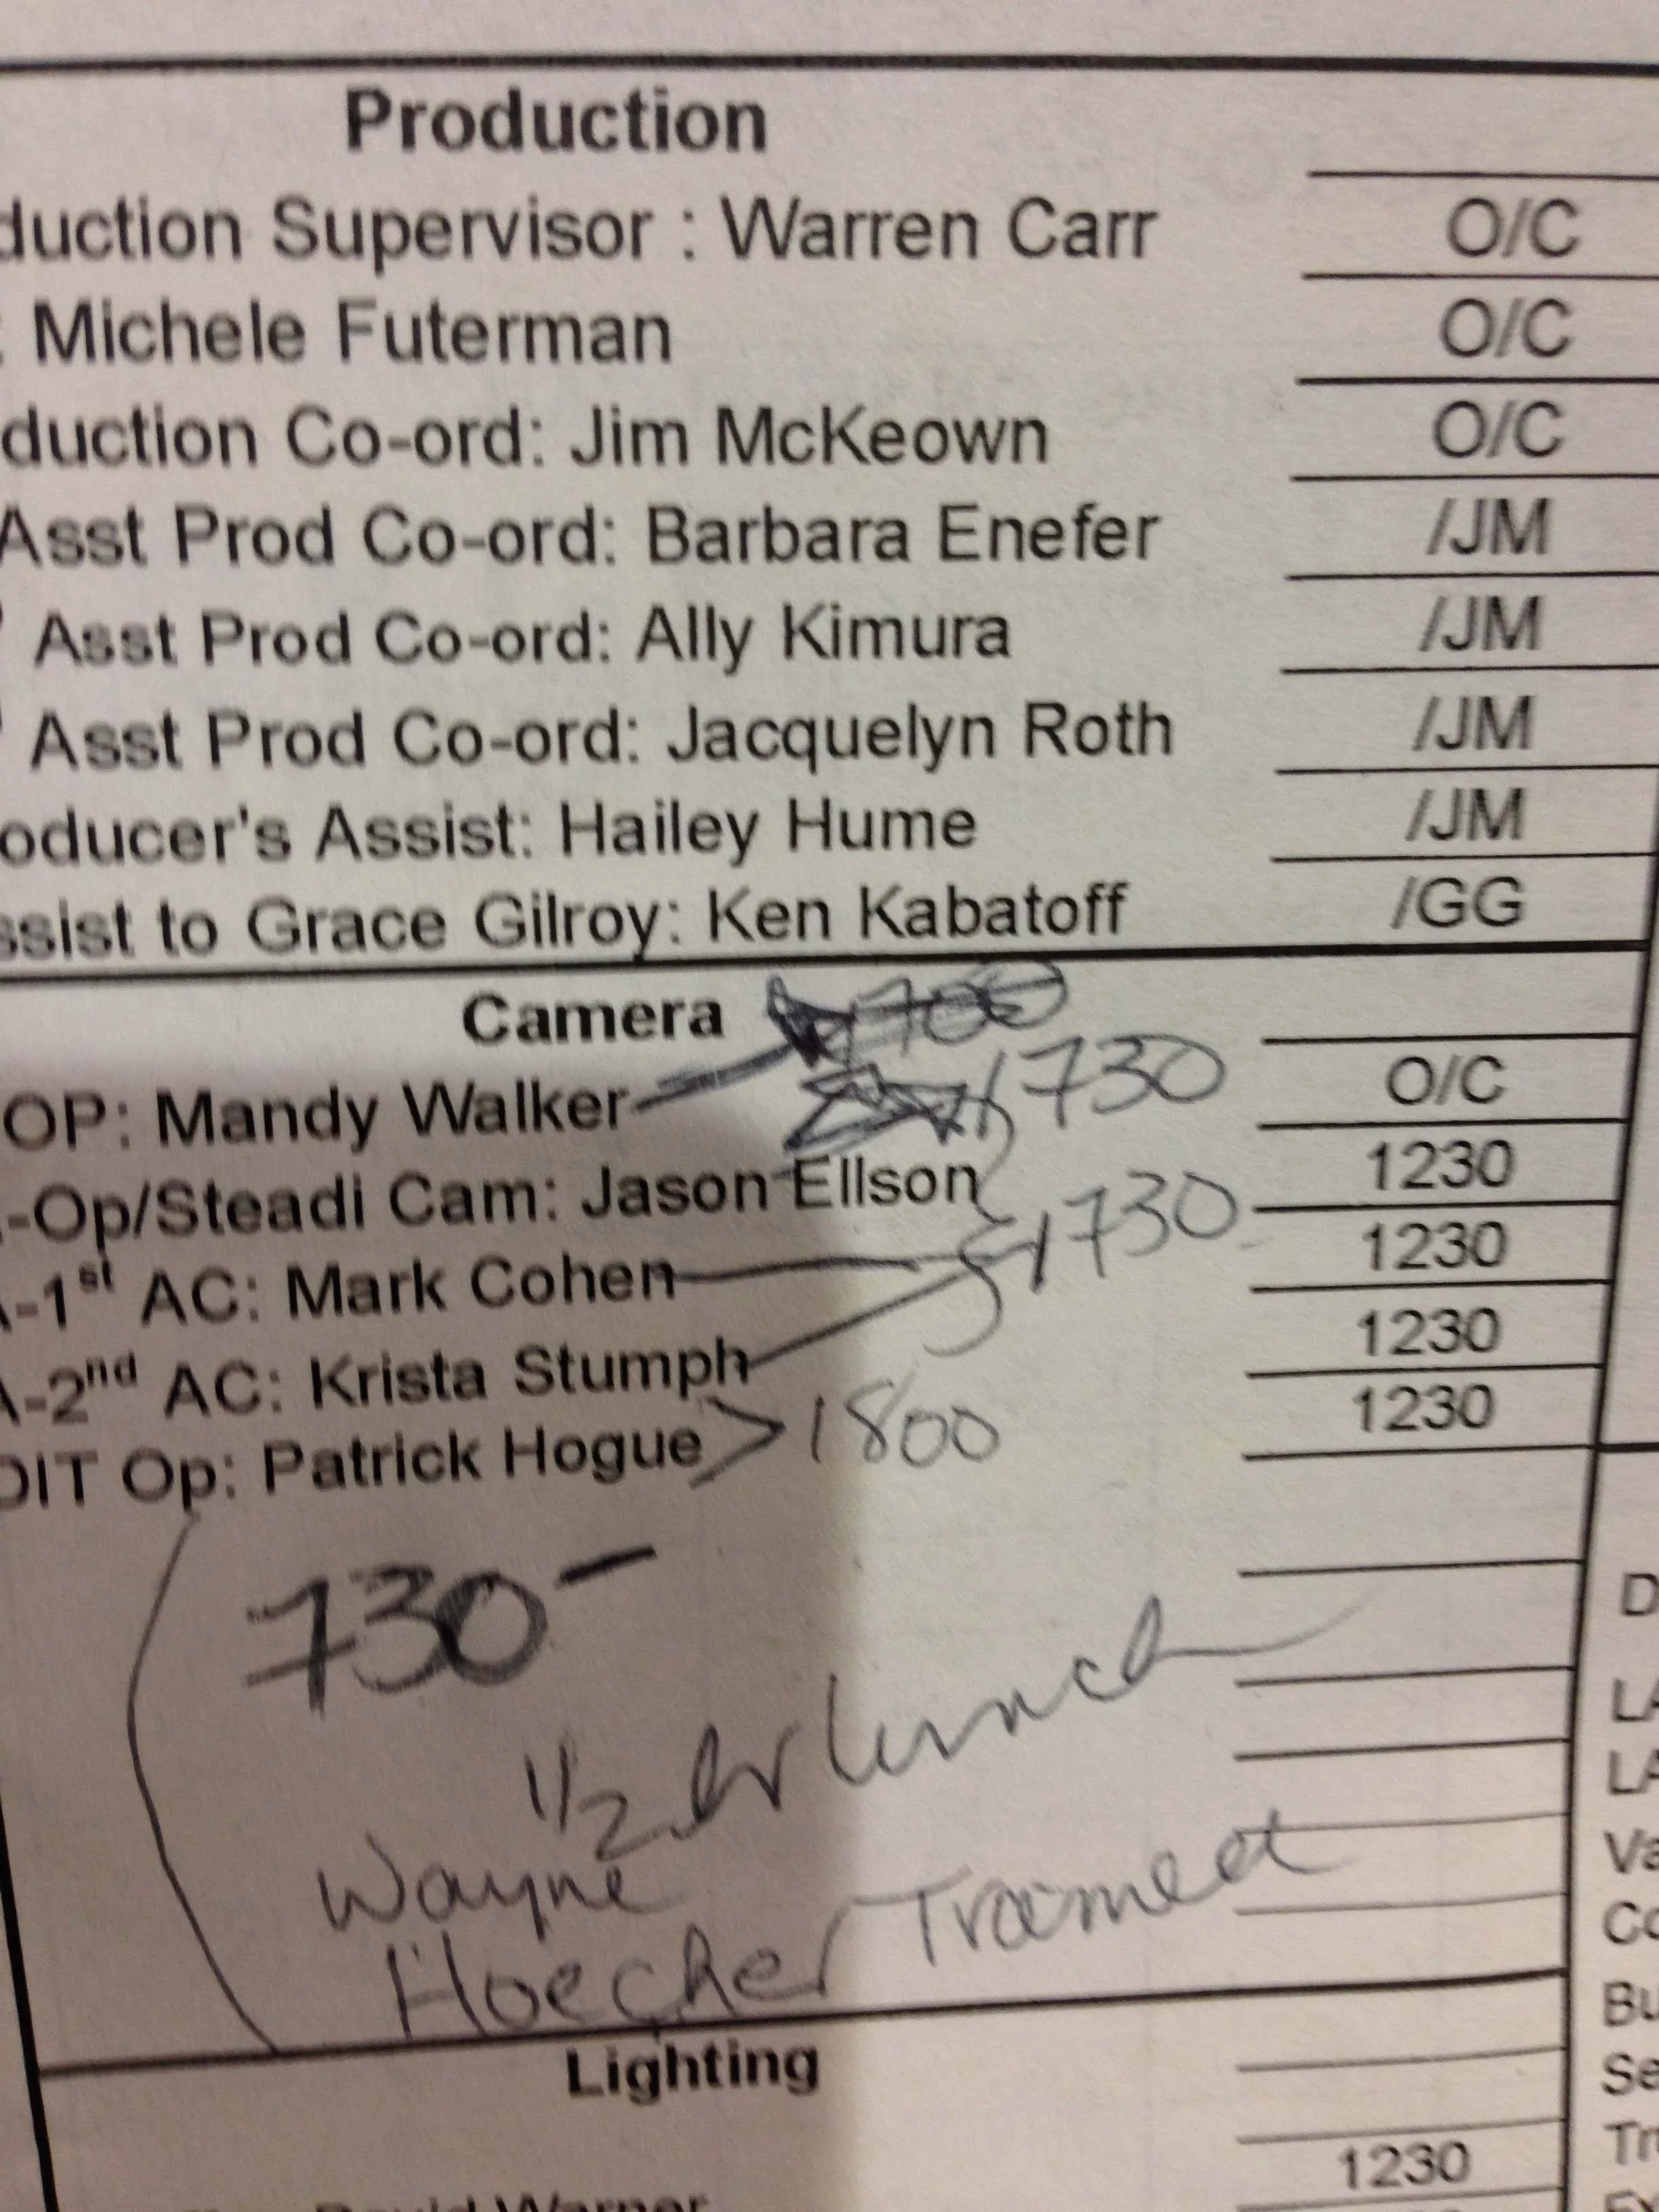 Production
duction Supervisor : Warren Carr O/C
: Michele Futerman O/C
duction Co-ord: Jim McKeown O/C
Asst Prod Co-ord: Barbara Enefer /JM
Asst Prod Co-ord: Ally Kimura /JM
Asst Prod Co-ord: Jacquelyn Roth /JM
oducer's Assist: Hailey Hume /JM
ssist to Grace Gilroy: Ken Kabatoff /GG
Camera 1700
1730
OP: Mandy Walker O/C
-Op/Steadi Cam: Jason Ellson 1230
1730
A-1st AC: Mark Cohen 1230
A-2nd AC: Krista Stumph 1230
DIT Op: Patrick Hogue > 1800 1230
730-
1/2 hr lunch
Wayne
Hoecher Trained
Lighting
1230
David Warner
D
LA
LA
Va
Co
Bu
Se
Tr
Ex